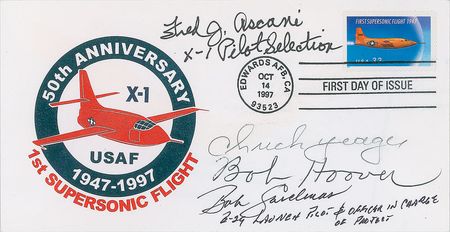 50th ANNIVERSARY
X-1
USAF
1947-1997
1st SUPERSONIC FLIGHT
Fred J. Ascani
X-1 Pilot Selection
FIRST SUPERSONIC FLIGHT 1947
USA 32
EDWARDS AFB, CA
OCT
14
1997
93523
FIRST DAY OF ISSUE
Chuck Yeager
Bob Hoover
Bob Cardenas
B-29 LAUNCH PILOT & OFFICER IN CHARGE
OF PROJECT